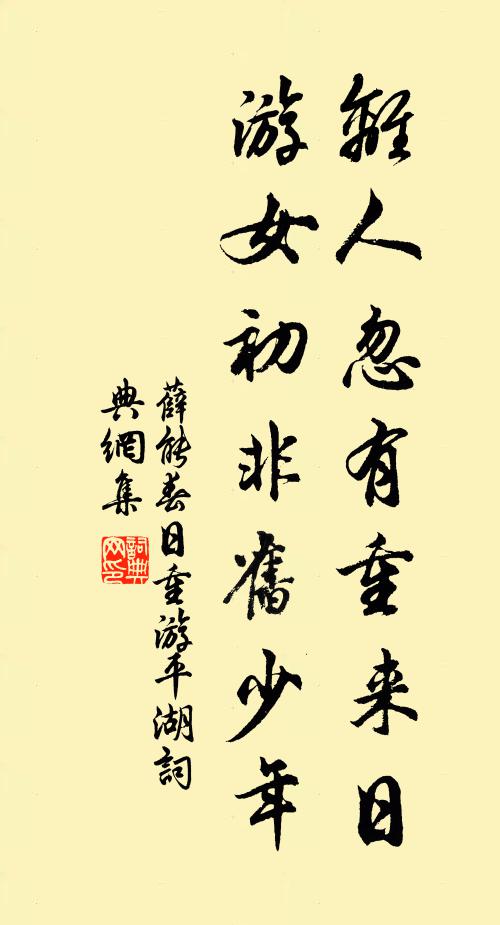 離人忽有重来日
游女初非舊少年
薛能春日重游平湖詞
典網集
詞典
网印